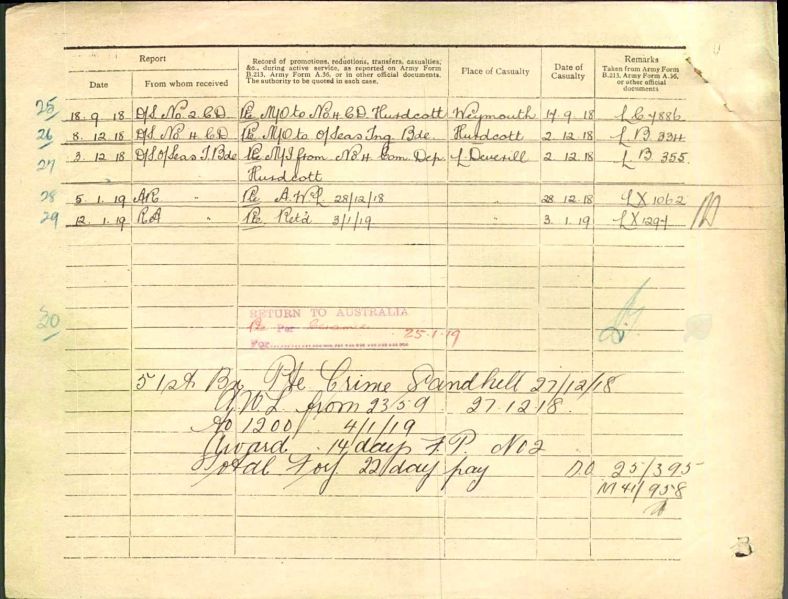 Report
Record of promotions, reductions, transfers, casualties,
&c., during active service, as reported on Army Form
B.213, Army Form A.36, or in other official documents.
The authority to be quoted in each case.
Place of Casualty
Date of
Casualty
Remarks
Taken from Army Form
B.213, Army Form A.36,
or other official
documents
Date
From whom received
25 18.9.18 O/S No. 2 C.D. Pte M/O to No 4 C.D. Hurdcott Weymouth 17.9.18 L C 7886
26 8.12.18 O/S No 4 C.D. Pte M/O to O/Seas Tng Bde Hurdcott 2.12.18 L B 334
27 3.12.18 O/S O/Seas T. Bde Pte M/I from No 4 Com. Dep. L Deverill 2.12.18 L B 355
Hurdcott
28 5.1.19 AR " Pte A.W.L. 28/12/18 " 28.12.18 LX1062
29 12.1.19 RA " Pte Ret'd 3/1/19 " 3.1.19 LX1294
30
RETURN TO AUSTRALIA
Pte Per 25.1.19
For
Pte Crime Sandhill 27/12/18
A.W.L. from 2359 27.12.18.
to 1200 4/1/19
Award 14 days F.P. No 2
Total Forf 22 day pay D.O. 25/395
M 41/958
3